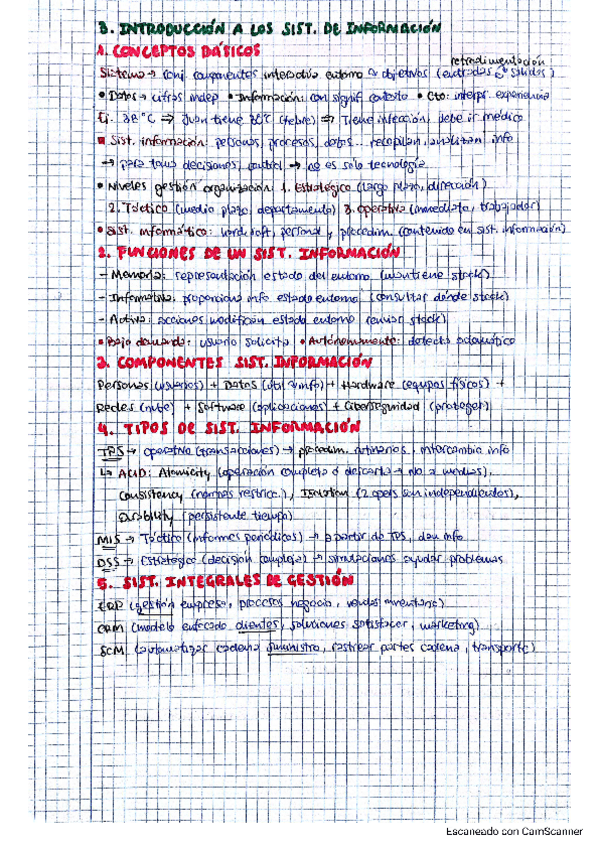 3. INTRODUCCIÓN A LOS SIST. DE INFORMACIÓN
1. CONCEPTOS BÁSICOS
retroalimentación
Sistema → conj. componentes interactúa entorno objetivos (entradas salidas)
• Datos → cifras indep • Información: con signif. contexto • Cto: interpr. experiencia
Ej. 38°C ⇒ Juan tiene 38°C (fiebre) ⇒ Tiene infección, debe ir médico
Sist. información: personas, procesos, datos... recopilan, analizan info
→ para tomar decisiones, control → no es solo tecnología
• Niveles gestión organización: 1. Estratégico (largo plazo, dirección)
2. Táctico (medio plazo, departamento) 3. Operativo (inmediata, trabajador)
• Sist. informático: hard, soft, personal y procedim. (contenido en sist. información)
2. FUNCIONES DE UN SIST. INFORMACIÓN
- Memoria: representación estado del entorno (mantiene stock)
- Informativa: proporciona info estado entorno (consultar dónde stock)
- Activa: acciones modifican estado entorno (enviar stock)
• Bajo demanda: usuario solicita • Autónomamente: detecta automático
3. COMPONENTES SIST. INFORMACIÓN
Personas (usuarios) + Datos (útil info) + Hardware (equipos físicos) +
Redes (nube) + Software (aplicaciones) + Ciberseguridad (proteger)
4. TIPOS DE SIST. INFORMACIÓN
TPS → operativo (transacciones) → procedim. rutinarios, intercambia info
↳ ACID: Atomicity (operación completa o descarta → no a medias),
Consistency (normas restricc.), Isolation (2 opers son independientes),
Durability (persistente tiempo)
MIS → Táctico (informes periódicos) → a partir de TPS, dan info
DSS → Estratégico (decisión compleja) → simulaciones ayudar problemas
5. SIST. INTEGRALES DE GESTIÓN
ERP (gestión empresa, procesos negocio, ventas inventario)
CRM (modelo enfocado clientes, soluciones satisfacer, marketing)
SCM (automatizar cadena suministro, rastrear partes cadena, transporte)
Escaneado con CamScanner